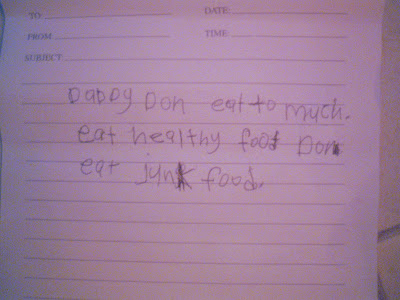 TO DATE:
FROM TIME:
SUBJECT
DaDDy Don eat to much.
eat healthy food Don
eat junk food.